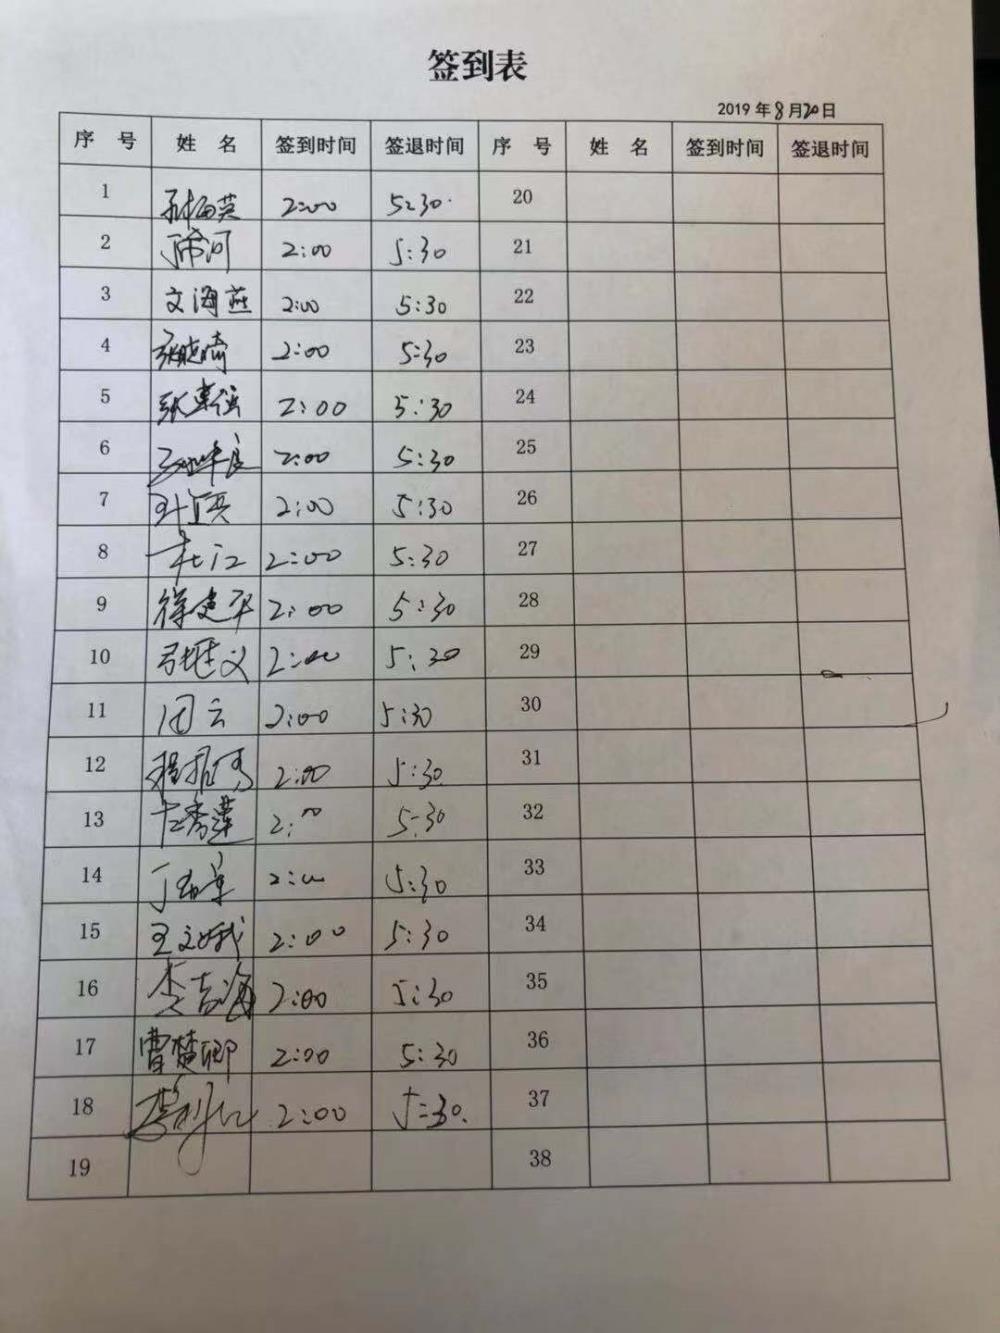 签到表
2019 年 8 月 20 日
序 号 姓 名 签到时间 签退时间 序 号 姓 名 签到时间 签退时间
1 孙梅英 2:00 5:30 20
2 2:00 5:30 21
3 文海燕 2:00 5:30 22
4 张晓晴 2:00 5:30 23
5 2:00 5:30 24
6 2:00 5:30 25
7 2:00 5:30 26
8 杜江 2:00 5:30 27
9 徐建平 2:00 5:30 28
10 2:00 5:30 29
11 闭云 2:00 5:30 30
12 2:00 5:30 31
13 2:00 5:30 32
14 2:00 5:30 33
15 王文娥 2:00 5:30 34
16 李吉海 2:00 5:30 35
17 曹楚卿 2:00 5:30 36
18 2:00 5:30 37
19 38